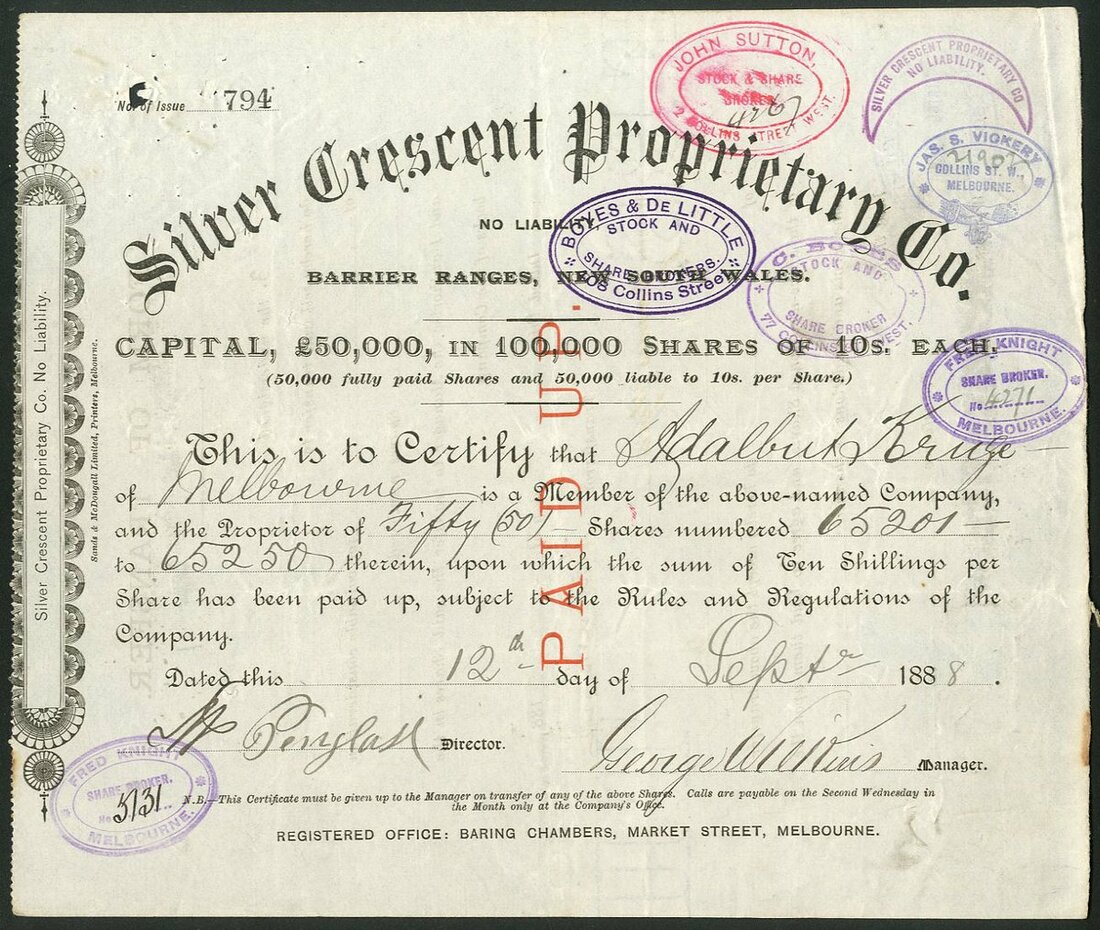 No. of Issue 794
JOHN SUTTON,
STOCK & SHARE
BROKER
4267
2 COLLINS STREET WEST.
SILVER CRESCENT PROPRIETARY CO
NO LIABILITY.
JAS. S. VICKERY
COLLINS ST. W.,
MELBOURNE.
Silver Crescent Proprietary Co.
NO LIABILITY,
BOYES & DE LITTLE
STOCK AND
SHARE BROKERS.
Collins Street
BARRIER RANGES, NEW SOUTH WALES.
C. BOYES
STOCK AND
SHARE BROKER
77 COLLINS ST WEST.
CAPITAL, £50,000, IN 100,000 SHARES OF 10S. EACH,
(50,000 fully paid Shares and 50,000 liable to 10s. per Share.)
FRED KNIGHT
SHARE BROKER.
No 4271
MELBOURNE.
PAID UP.
This is to Certify that Adalbert Kruge
of Melbourne is a Member of the above-named Company,
and the Proprietor of Fifty (50) Shares numbered 65201
to 65250 therein, upon which the sum of Ten Shillings per
Share has been paid up, subject to the Rules and Regulations of the
Company.
Dated this 12th day of Septr 1888.
Director.
George Wilkins Manager.
FRED KNIGHT
SHARE BROKER.
No 5131
MELBOURNE.
N.B.—This Certificate must be given up to the Manager on transfer of any of the above Shares. Calls are payable on the Second Wednesday in
the Month only at the Company's Office.
REGISTERED OFFICE: BARING CHAMBERS, MARKET STREET, MELBOURNE.
Silver Crescent Proprietary Co. No Liability.
Sands & McDougall Limited, Printers, Melbourne.